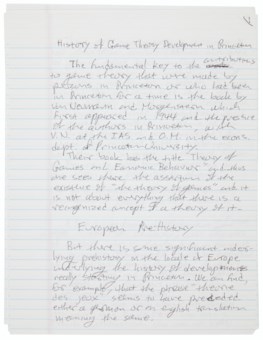 History of Game Theory Development in Princeton
The fundamental key to the contributions
to game theory that were made by
persons in Princeton or who had been
in Princeton for a time is the book by
Von Neumann and Morgenstern which
first appeared in 1944 and the presence
of the authors in Princeton, with
V.N. at the IAS and O.M. in the econ.
dept. of Princeton University.
Their book has the title "Theory of
Games and Economic Behavior"
one sees there the assertion of the
existence of "the theory of games" and it
is not about everything that there is a
recognized concept of a theory of it.
European Pre-History
But there is some significant under-
lying prehistory in the later of Europe
underlying the history of developments
ready in Princeton. We can find,
for example, what the phrase "théorie
des jeux" seems to have preceded
either a German or an english translation
meaning the same.